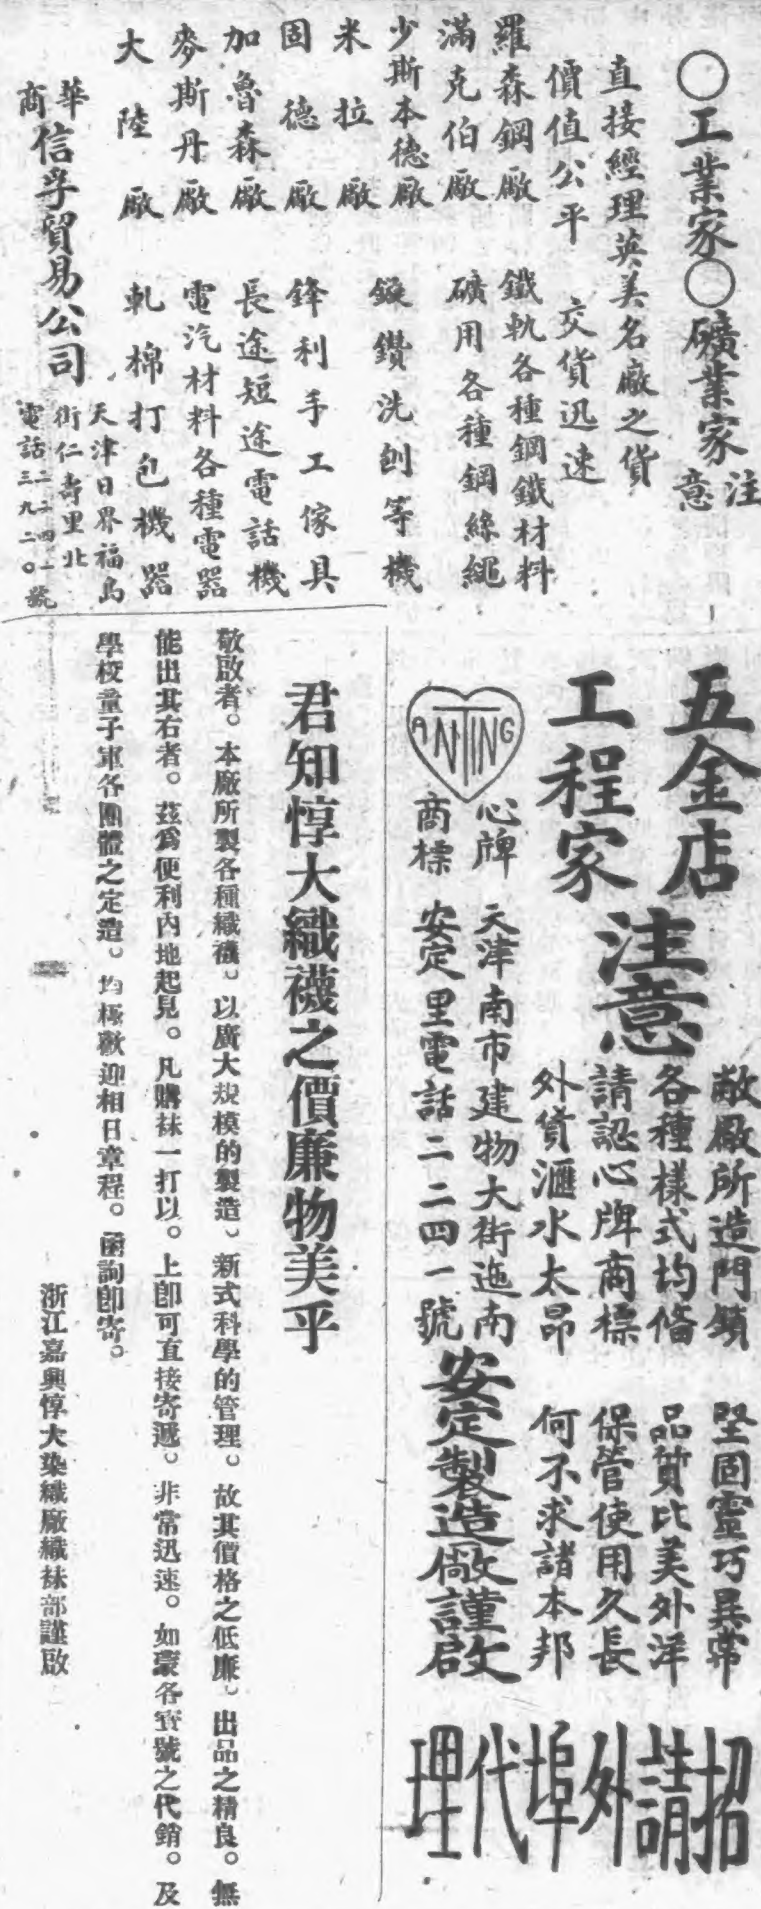 ○工業家○礦業家注意
直接經理英美名廠之貨
價值公平 交貨迅速
羅森鋼廠 鐵軌各種鋼鐵材料
滿克伯廠 礦用各種鋼絲繩
少斯本德廠 鏇鑽洗刨等機
米拉廠
固德廠 鋒利手工傢具
加魯森廠 長途短途電話機
麥斯丹廠 電汽材料各種電器
大陸廠 軋棉打包機器
華商信孚貿易公司
天津日界福島
街仁壽里北
電話二二四一
三九二〇號
五金店
工程家
注意
敝廠所造門鎖 堅固靈巧異常
各種樣式均備 品質比美外洋
請認心牌商標 保管使用久長
外貨滙水太昂 何不求諸本邦
ANTING
心牌
商標
天津南市建物大街迤南
安定里電話二二四一號
安定製造廠謹啟
招請外埠代理
君知惇大織襪之價廉物美乎
敬啟者。本廠所製各種織襪、以廣大規模的製造、新式科學的管理。故其價格之低廉、出品之精良。無
能出其右者。茲爲便利內地起見。凡購袜一打以。上卽可直接寄遞。非常迅速。如蒙各寶號之代銷。及
學校童子軍各團體之定造、均極歡迎相日章程。函詢卽寄。
浙江嘉興惇大染織廠織袜部謹啟